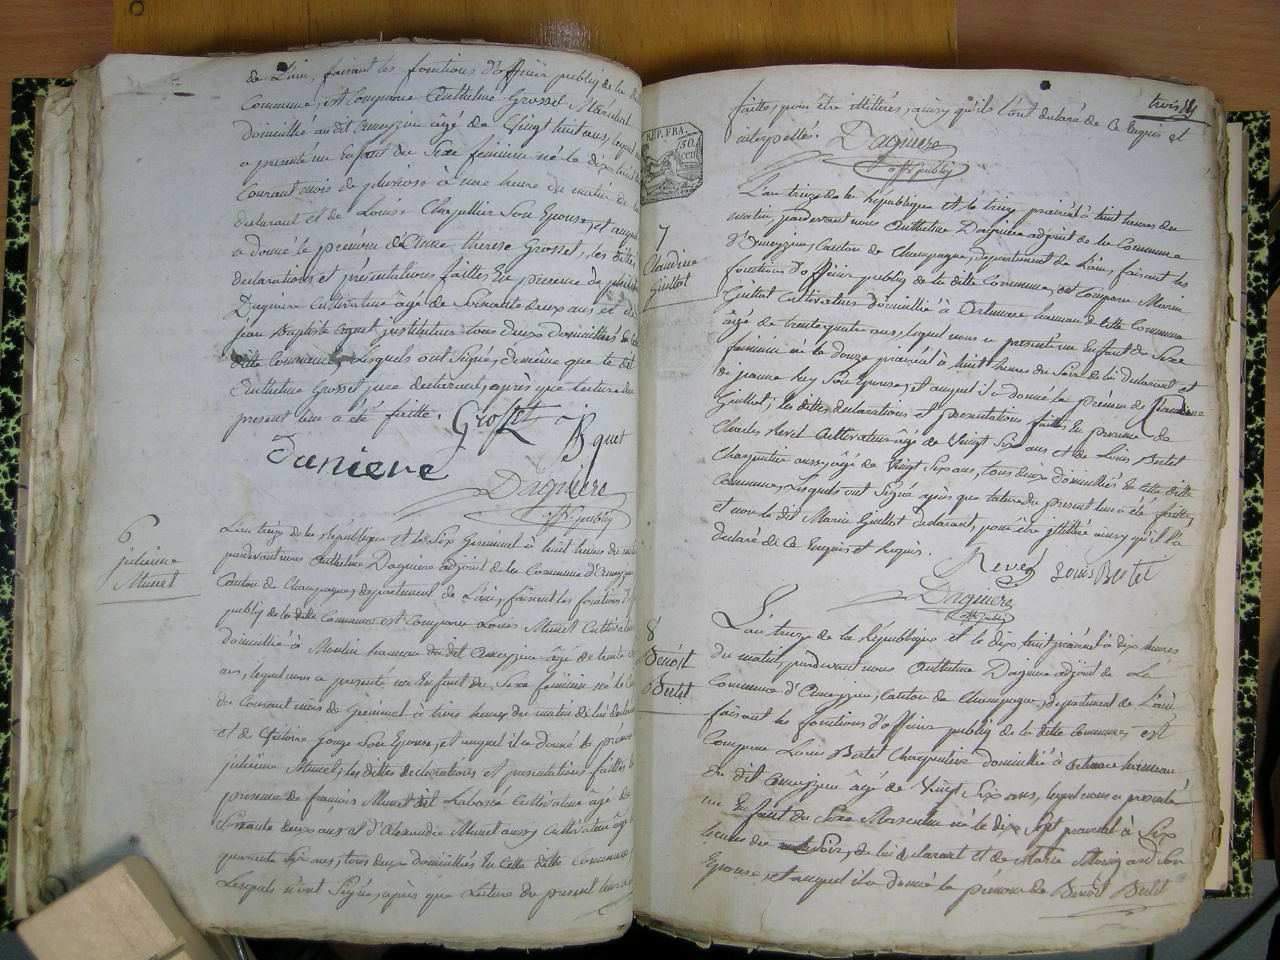 de Lain, faisant les fonctions d'officier public de la
Commune, est Comparu Anthelme Grosset Maréchal
domicillié au dit ameyzieu âgé de vingt huit ans, lequel
a présenté un Enfant du Sexe féminin né le dix huit
Courant mois de pluviose à une heure du matin de
declarant et de Louise Chapellier Son Epouse, et auquel
a donné le prénom d'Anne therese Grosset, les dittes
declarations et présentations faittes En presence de
Dagniere Cultivateur âgé de Soixante deux ans et de
jean Baptiste instituteur tous deux domicilliés
ditte Commune, Lesquels ont Signés, de meme que le dit
Anthelme Grosset, pere declarant, après que Lecture du
present leur a été faitte.
Grosset
Daniere
Dagniere
off. public
6
julienne
Munet
L'an treize de la République et le Six Germinal à huit heures du matin
pardevant nous Anthelme Dagniere adjoint de la Commune d'Ameyzieu
Canton de Champagne, département de Lain, faisant les fonctions d'
public de la ditte Commune est Comparu Louis Munet Cultivateur
domicillié à Moulin hameau du dit Ameyzieu âgé de trente
ans, lequel nous a presenté un Enfant du Sexe féminin né le
du Courant mois de Germinal à trois heures du matin de lui declarant
et de Son Epouse, et auquel il a donné le prenom
julienne Munet, les dittes declarations et presentations faittes
presence de françois Munet dit Cultivateur âgé de
Soixante deux ans et d'Alexandre Munet aussy Cultivateur âgé
quarante Six ans, tous deux domicilliés En Cette ditte Commune,
Lesquels n'ont Signés, après que Lecture du present leur
faitte, pour être illitérés, ainsy qu'ils l'ont declaré de Ce requis et
interpellés. Dagniere
off. public
REP. FRA.
50
cen
7
Claudine
Guillot
L'an treize de la République et le treize prairial à huit heures du
matin, pardevant nous Anthelme Dagniere adjoint de la Commune
d'Ameyzieu, Canton de Champagne, département de Lain, faisant les
fonctions d'officier public de la ditte Commune, est Comparu Marin
Guillot Cultivateur domicillié à hameau de ditte Commune
âgé de trente quatre ans, lequel nous a presenté un Enfant du Sexe
féminin né le douze prairial à huit heures du Soir de lui declarant et
de jeanne Rey Son Epouse, et auquel il a donné le prénom de Claudine
Guillot; les dittes declarations et presentations faittes En presence de
Charles Revel Cultivateur âgé de Vingt Six ans et de Louis Bertet
Charpentier aussy âgé de Vingt Six ans, tous deux domicilliés En Cette ditte
Commune, Lesquels ont Signé après que lecture du present leur a été faitte,
et non le dit Marin Guillot declarant, pour être illitéré ainsy qu'il l'a
declaré de Ce Enquis et Requis.
Revel Louis Bertet
Dagniere
off. public
8
Benoît
Bertet
L'an treize de la République et le dix huit prairial à dix heures
du matin, pardevant nous Anthelme Dagniere adjoint de La
Commune d'Ameyzieu, Canton de Champagne, département de Lain
faisant les fonctions d'officier public de la ditte Commune est
Comparu Louis Bertet Charpentier domicillié à hameau
du dit Ameyzieu âgé de Vingt Six ans, lequel nous a presenté
un Enfant du Sexe Masculin né le dix Sept prairial à Six
heures du Soir, de lui declarant et de Marie Son
Epouse, et auquel il a donné le prénom de Benoît Bertet